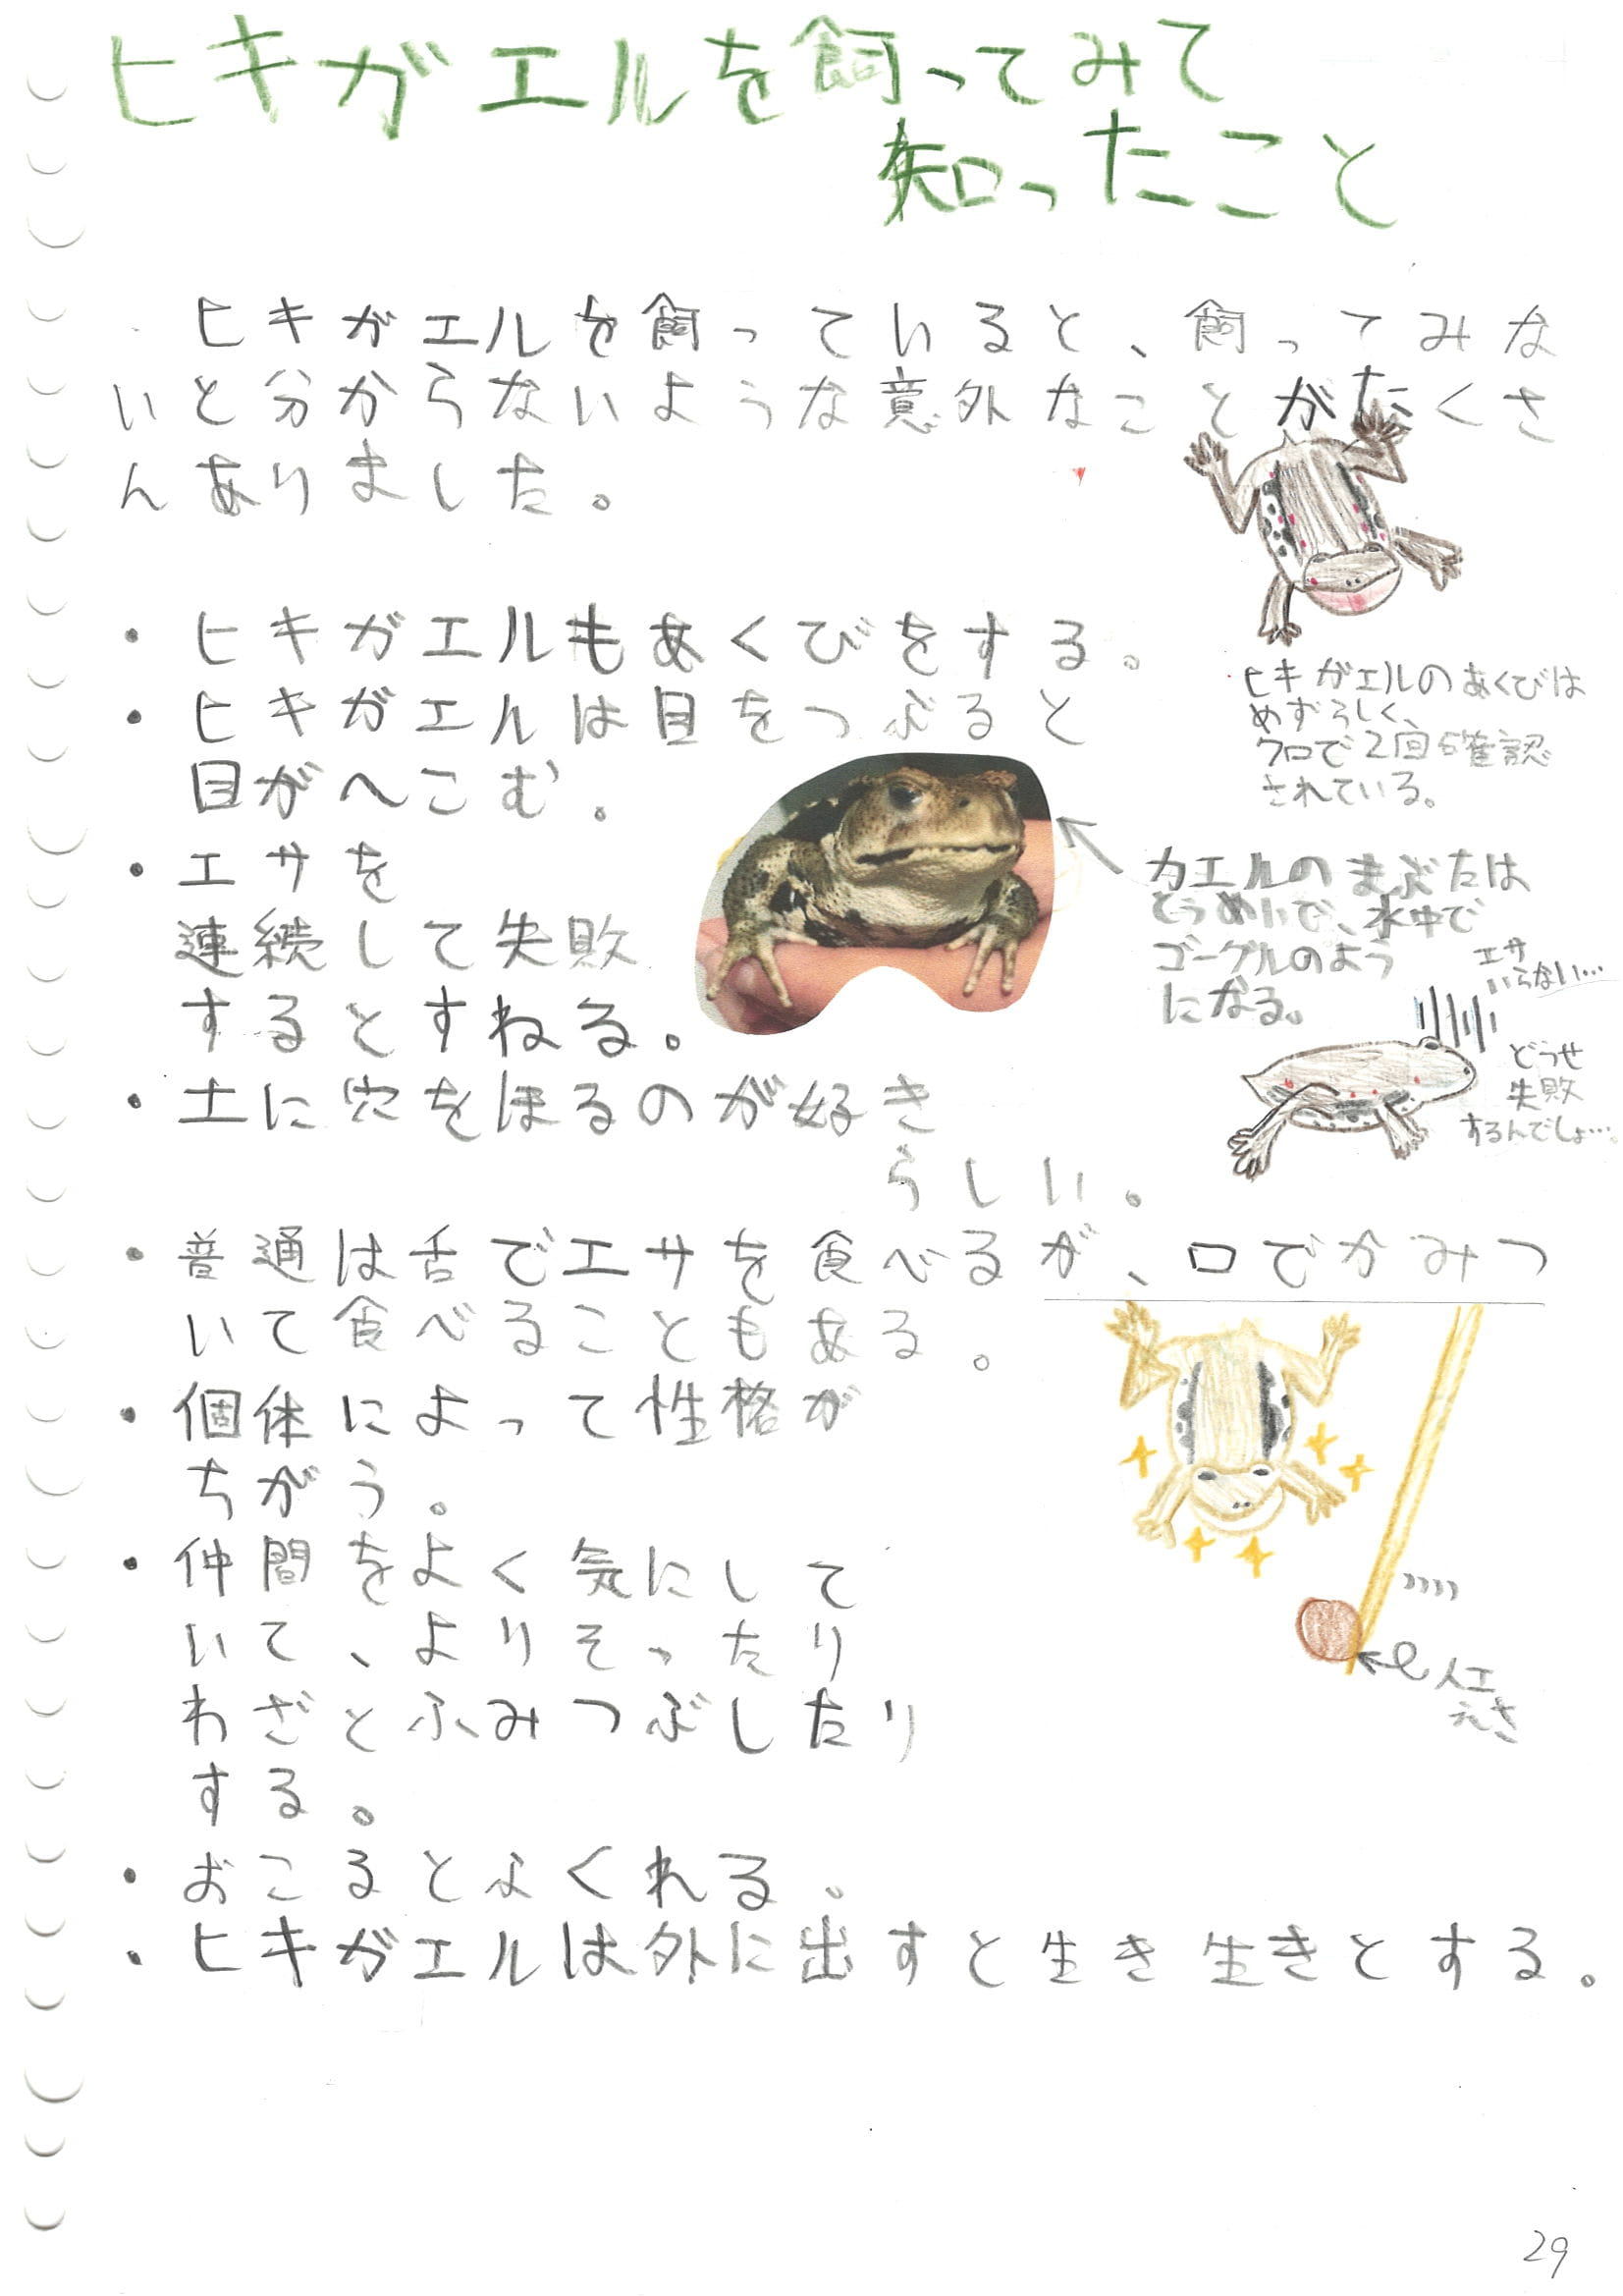 ヒキガエルを飼ってみて
知ったこと
ヒキガエルを飼っていると、飼ってみな
いと分からないような意外なことがたくさ
んありました。
・ヒキガエルもあくびをする。
ヒキガエルのあくびは
めずらしく、
クロで2回確認
されている。
・ヒキガエルは目をつぶると
目がへこむ。
カエルのまぶたは
とうめいで、水中で
ゴーグルのよう
になる。
・エサを
連続して失敗
するとすねる。
エサ
いらない…
どうせ
失敗
するんでしょ…。
・土に穴をほるのが好き
らしい。
・普通は舌でエサを食べるが、口でかみつ
いて食べることもある。
・個体によって性格が
ちがう。
・仲間をよく気にして
いて、よりそったり
わざとふみつぶしたり
する。
人工
えさ
・おこるとふくれる。
・ヒキガエルは外に出すと生き生きとする。
29